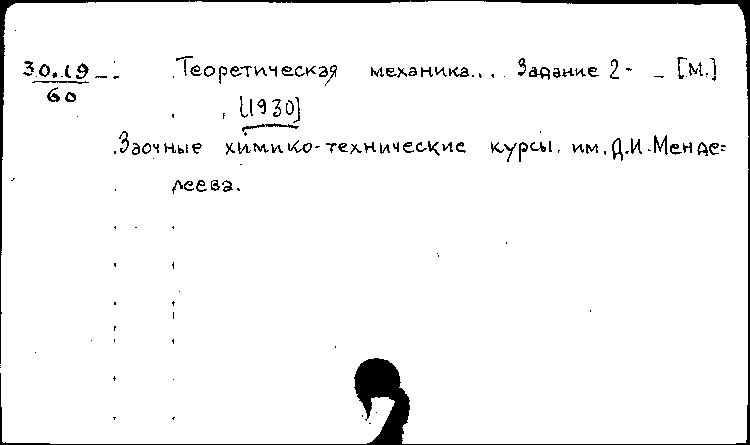 30.19 Теоретическая механика... Задание 2- - [М.]
60
[1930]
Заочные химико-технические курсы им. Д.И. Менде=
леева.